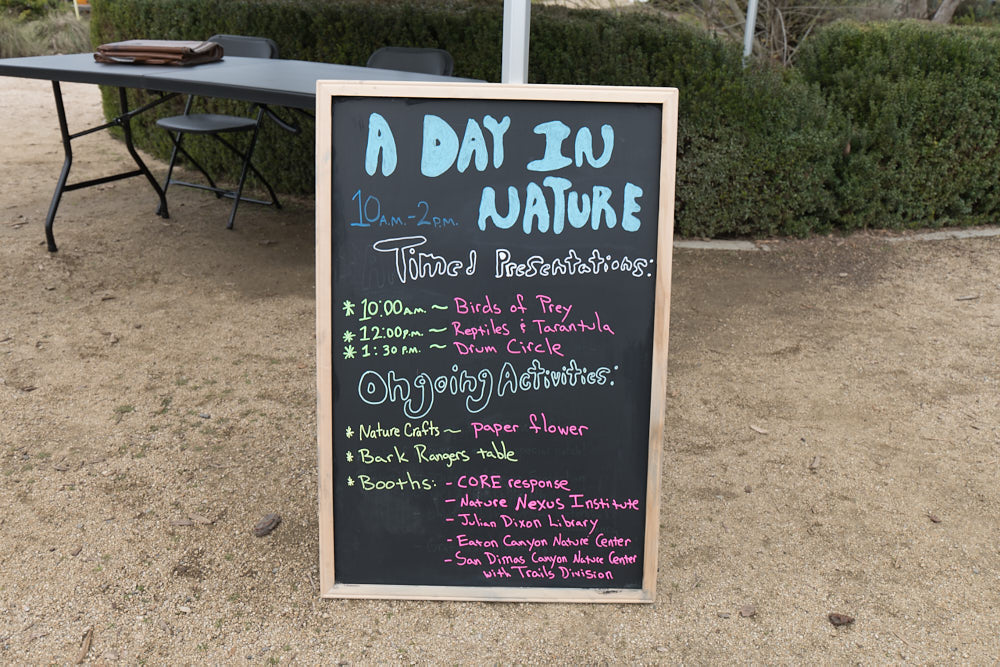 A DAY IN
10 A.M. - 2 P.M. NATURE
Timed Presentations:
* 10:00 A.M. ~ Birds of Prey
* 12:00 P.M. ~ Reptiles & Tarantula
* 1:30 P.M. ~ Drum Circle
Ongoing Activities:
* Nature Crafts ~ paper flower
* Bark Rangers table
* Booths: - CORE response
- Nature Nexus Institute
- Julian Dixon Library
- Eaton Canyon Nature Center
- San Dimas Canyon Nature Center
with Trails Division